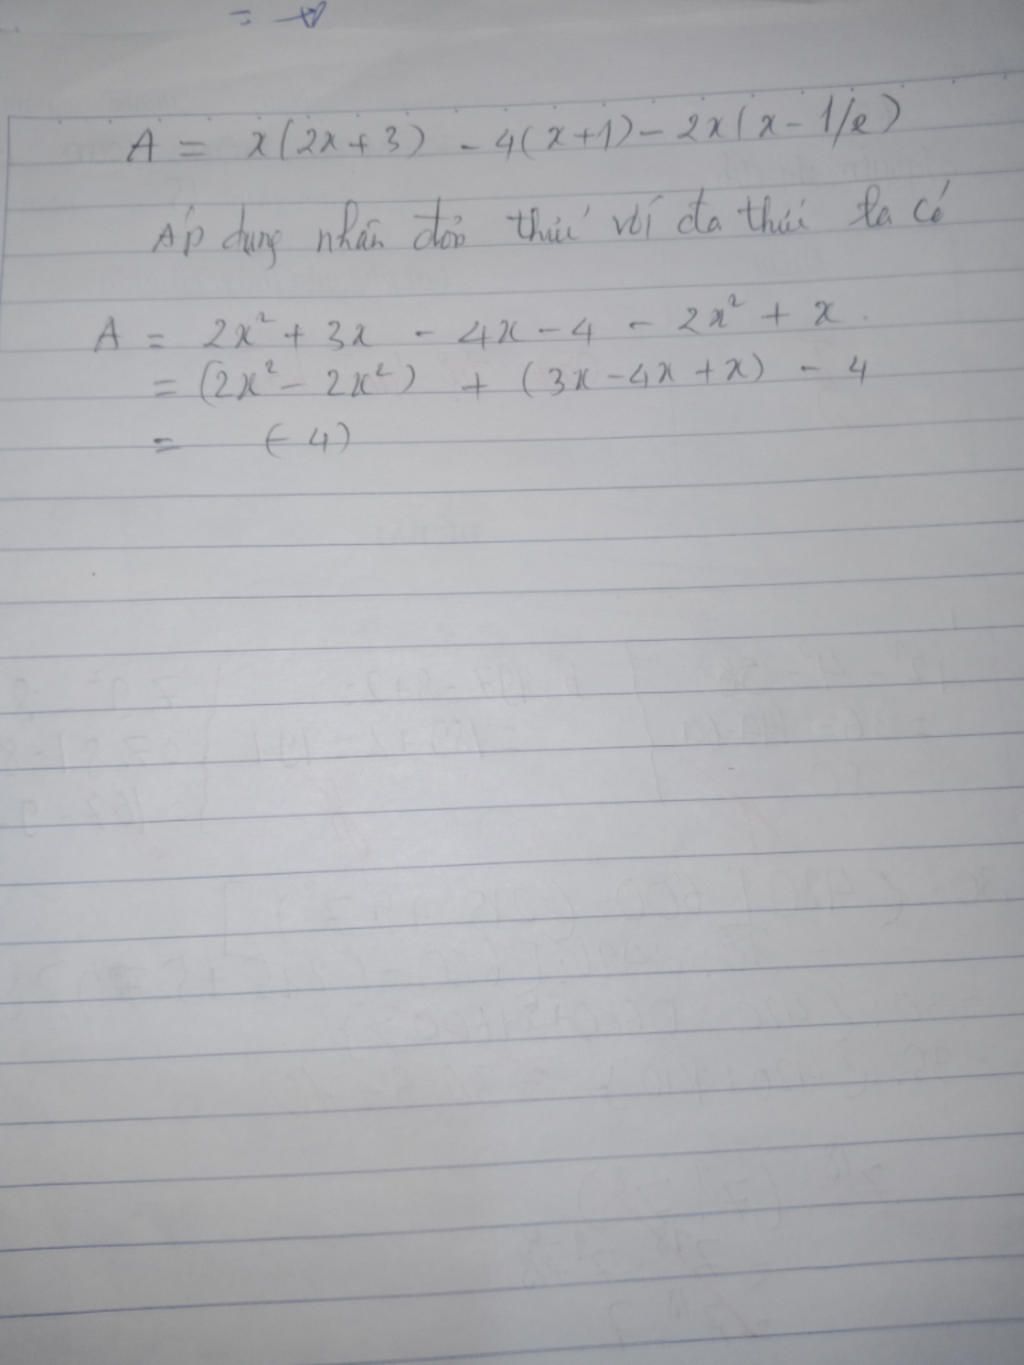 A = x(2x+3) - 4(x+1) - 2x(x - 1/2)
Áp dụng nhân đơn thức với đa thức ta có
A = 2x² + 3x - 4x - 4 - 2x² + x.
= (2x² - 2x²) + (3x - 4x + x) - 4
= (-4)